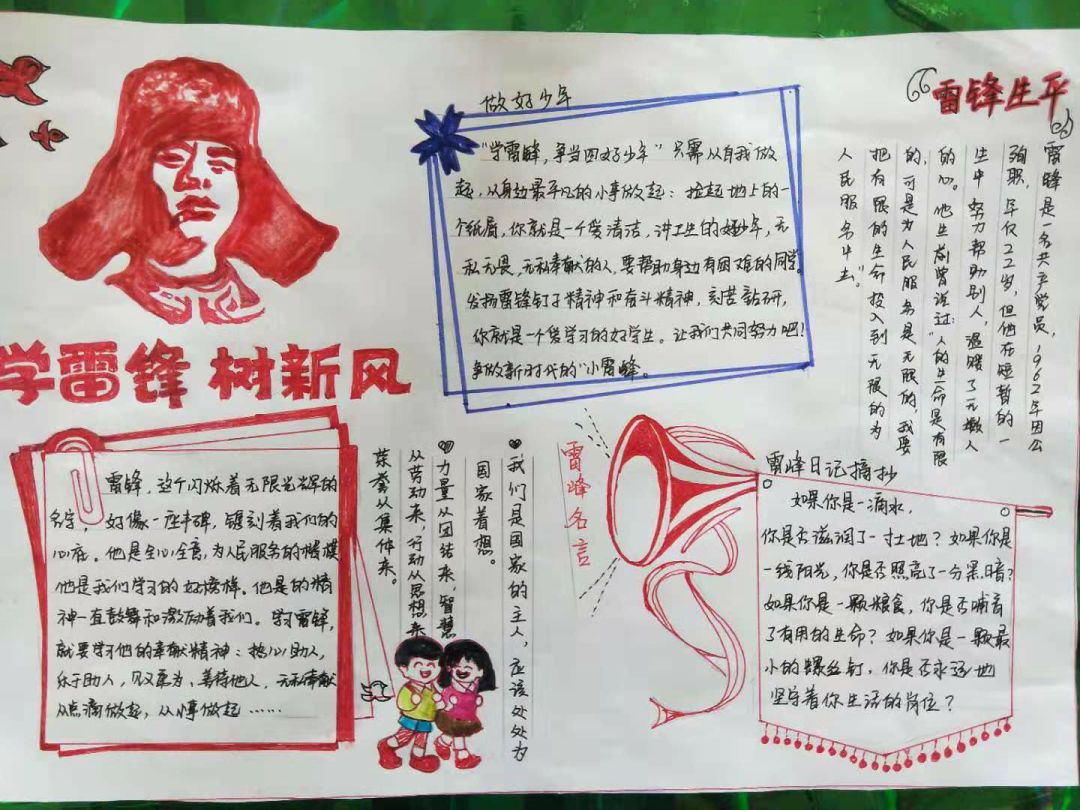 学雷锋 树新风
做好少年
"学雷锋，争当四好少年"只需从自我做
起，从身边最平凡的小事做起：捡起地上的一
个纸屑，你就是一个爱清洁，讲卫生的好少年，无
私无畏，无私奉献的人，要帮助身边有困难的同学。
发扬雷锋钉子精神和奋斗精神，刻苦钻研，
你就是一个爱学习的好学生。让我们共同努力吧！
争做新时代的"小雷锋。
雷锋生平
雷锋是一名共产党员，1962年因公
殉职，年仅22岁，但他在短暂的一
生中努力帮助别人，温暖了无数人
的心。他生前曾说过："人的生命是有限
的，可是为人民服务是无限的，我要
把有限的生命投入到无限的为
人民服务中去"。
雷锋，这个闪烁着无限光辉的
名字，好像一座丰碑，镌刻着我们的
心底。他是全心全意，为人民服务的楷模，
他是我们学习的好榜样。他是的精
神一直鼓舞和激励着我们。学习雷锋，
就要学习他的奉献精神：热心助人，
乐于助人，见义勇为、善待他人，无私奉献
从点滴做起，从小事做起……
雷峰名言
我们是国家的主人，应该处处为
国家着想。
力量从团结来，智慧
从劳动来，行动从思想来
荣誉从集体来。
雷峰日记摘抄
如果你是一滴水，
你是否滋润了一寸土地？如果你是
一线阳光，你是否照亮了一分黑暗？
如果你是一颗粮食，你是否哺育
了有用的生命？如果你是一颗最
小的螺丝钉，你是否永远地
坚守着你生活的岗位？